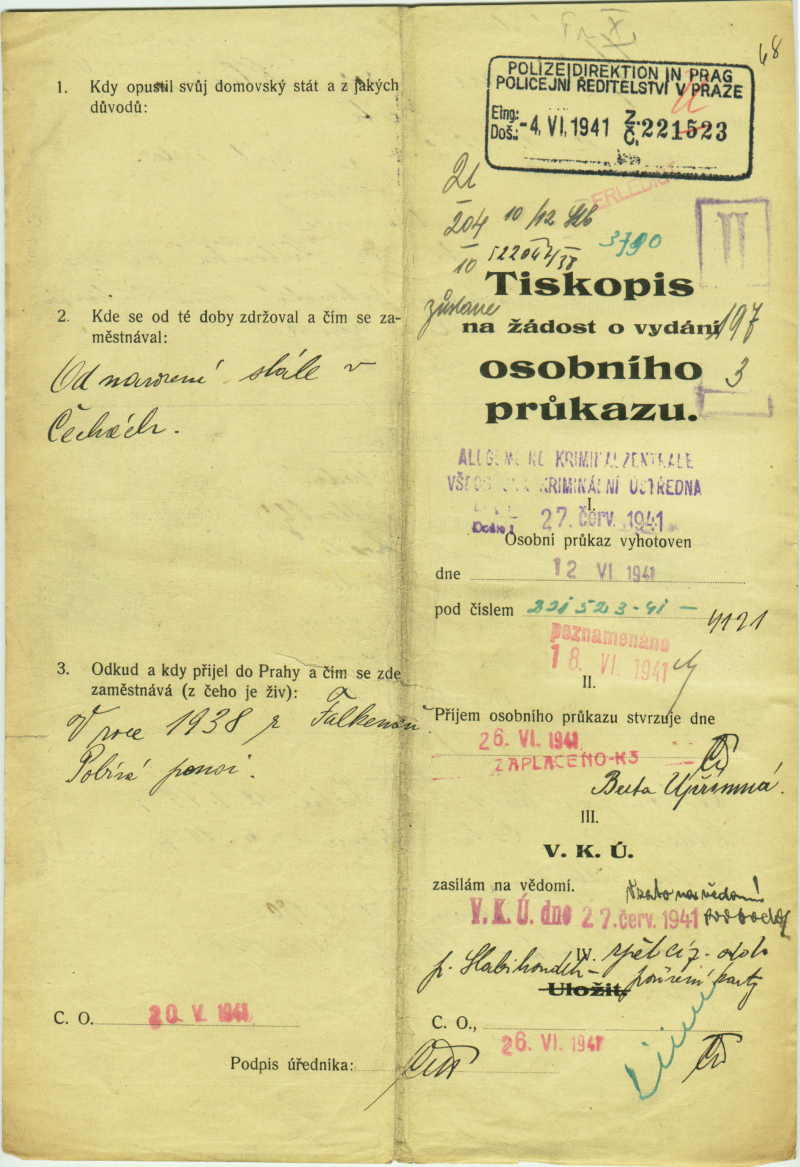 1. Kdy opustil svůj domovský stát a z jakých
důvodů:
2. Kde se od té doby zdržoval a čím se za-
městnával:
Od narození stále v
Čechách.
3. Odkud a kdy přijel do Prahy a čím se zde
zaměstnává (z čeho je živ):
V roce 1938 z Falkenau
Pobírá pensi.
C. O. 20. V. 1941
Podpis úředníka:
68
POLIZEIDIREKTION IN PRAG
POLICEJNÍ ŘEDITELSTVÍ V PRAZE
Eing:
Doš.: -4. VI. 1941 Z. Č. 221523
ERLEDIGT
21
204 10/12
3790
10
Tiskopis
zůstane
na žádost o vydání 197
osobního 3
průkazu.
ALLGEMEINE KRIMINALZENTRALE
VŠEOBECNÁ KRIMINÁLNÍ ÚSTŘEDNA
I.
27. červ. 1941
Osobní průkaz vyhotoven
dne 12 VI 1941
pod číslem 221523-41- 4121
poznamenáno
18. VI. 1941
II.
Příjem osobního průkazu stvrzuje dne
26. VI. 1941
ZAPLACENO-K3
Berta Upřímná.
III.
V. K. Ú.
zasílám na vědomí.
V. K. Ú. dne 27. červ. 1941
IV. zpět
Uložit.
C. O., 26. VI. 1941